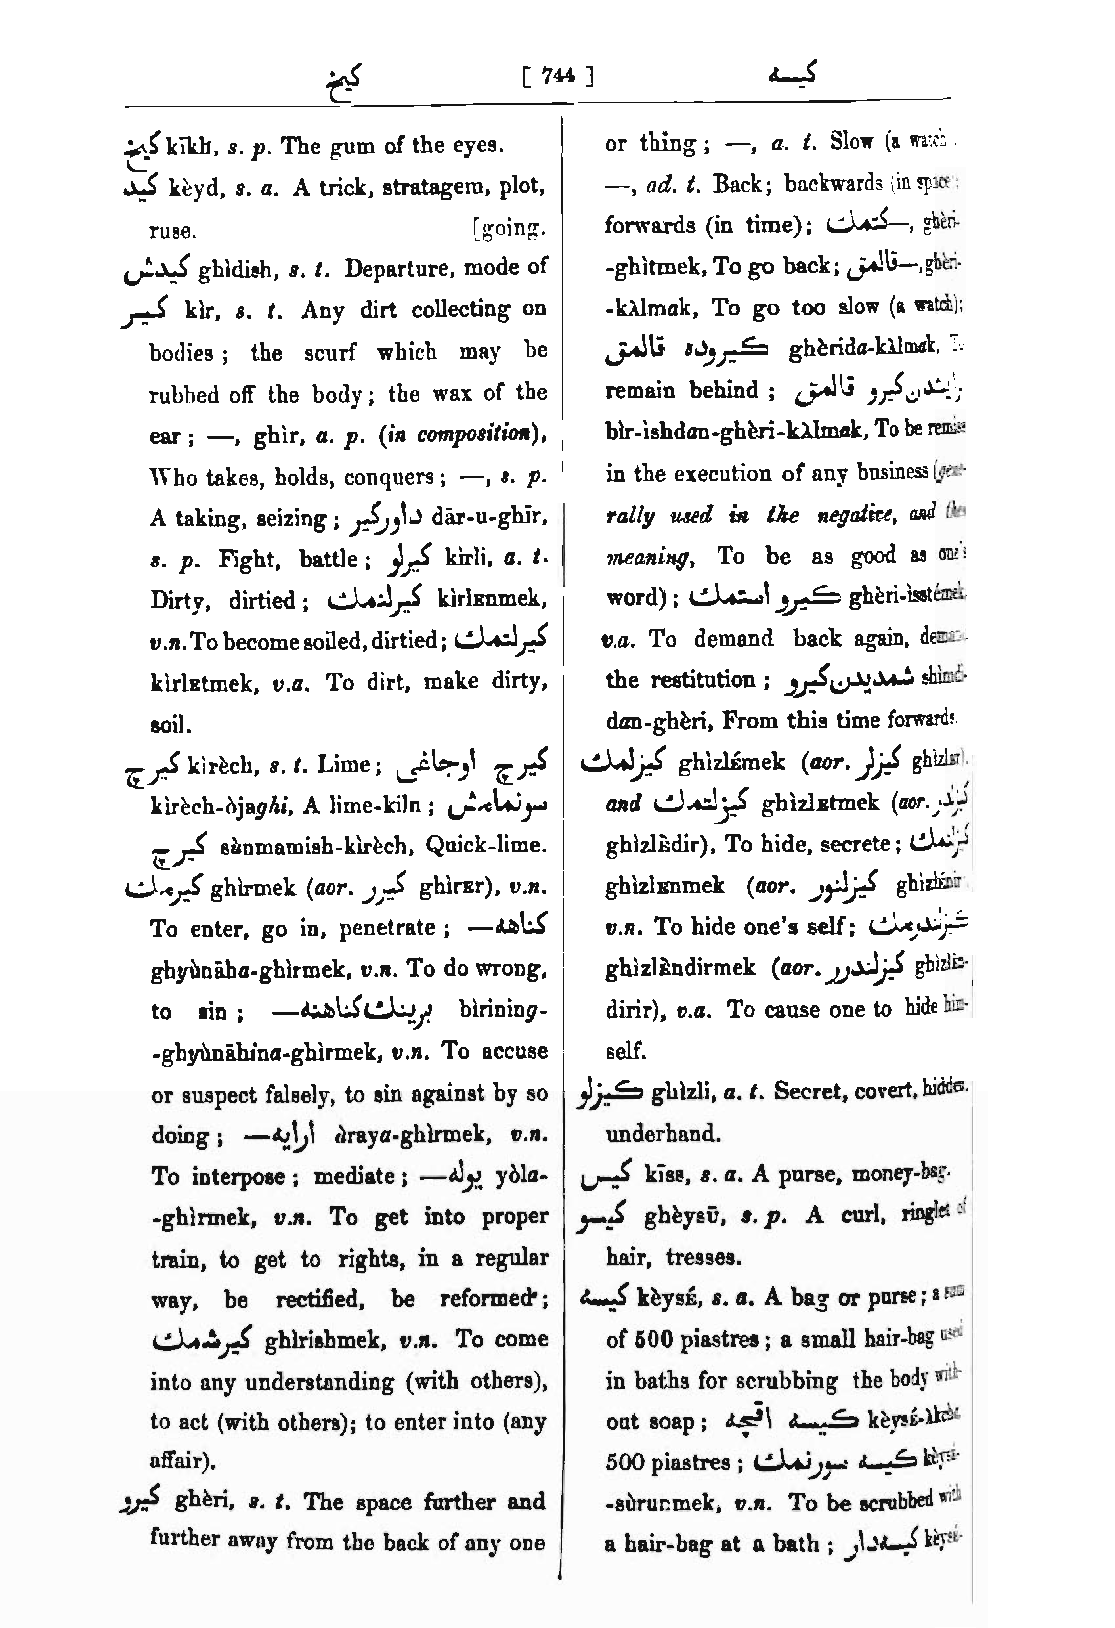 كيخ [ 744 ] كيسه
كيخ kīkh, s. p. The gum of the eyes.
كيد kèyd, s. a. A trick, stratagem, plot,
ruse. [going.
كيدش ghìdish, s. t. Departure, mode of
كير kìr, s. t. Any dirt collecting on
bodies ; the scurf which may be
rubbed off the body ; the wax of the
ear ; —, ghìr, a. p. (in composition),
Who takes, holds, conquers ; —, s. p.
A taking, seizing ; داروكير dār-u-ghīr,
s. p. Fight, battle ; كيرلو kìrli, a. t.
Dirty, dirtied ; كيرلنمك kìrlᴇnmek,
v.n. To become soiled, dirtied ; كيرلتمك
kìrlᴇtmek, v.a. To dirt, make dirty,
soil.
كيرج kìrèch, s. t. Lime ; كيرج اوجاغى
kìrèch-òjaghi, A lime-kiln ; سونمامش
كيرج sùnmamish-kìrèch, Quick-lime.
كيرمك ghìrmek (aor. كيرر ghìrᴇr), v.n.
To enter, go in, penetrate ; —كناهه
ghyùnāha-ghìrmek, v.n. To do wrong,
to sin ; —برينك كناهنه bìrining-
-ghyùnāhina-ghìrmek, v.n. To accuse
or suspect falsely, to sin against by so
doing ; —ارايه àraya-ghìrmek, v.n.
To interpose ; mediate ; —يوله yòla-
-ghìrmek, v.n. To get into proper
train, to get to rights, in a regular
way, be rectified, be reformed ;
كيرشمك ghìrishmek, v.n. To come
into any understanding (with others),
to act (with others); to enter into (any
affair).
كيرو ghèri, s. t. The space further and
further away from the back of any one
or thing ; —, a. t. Slow (a watch)
—, ad. t. Back ; backwards (in space)
forwards (in time) ; —كتمك, ghèri-
-ghìtmek, To go back ; —قالمق, ghèri-
-kλlmak, To go too slow (a watch);
كيروده قالمق ghèrida-kλlmak, To
remain behind ; برايشدن كيرو قالمق
bìr-ishdan-ghèri-kλlmak, To be remiss
in the execution of any business (gene-
rally used in the negative, and then
meaning, To be as good as one's
word) ; كيرو استمك ghèri-ìsstémek,
v.a. To demand back again, demand
the restitution ; شمديدن كيرو shìmdi-
dan-ghèri, From this time forwards.
كيزلمك ghìzlémek (aor. كيزلر ghìzlᴇr),
and كيزلتمك ghìzlᴇtmek (aor.
ghìzlèdir), To hide, secrete ; كيزلنمك
ghìzlᴇnmek (aor. كيزلنور ghìzlénir
v.n. To hide one's self ; كيزلندرمك
ghìzlèndirmek (aor. كيزلندرر ghìzlèn-
dirir), v.a. To cause one to hide him-
self.
كيزلو ghìzli, a. t. Secret, covert, hidden,
underhand.
كيس kīss, s. a. A purse, money-bag.
كيسو ghèysū, s. p. A curl, ringlet of
hair, tresses.
كيسه kèysé, s. a. A bag or purse ; a sum
of 500 piastres ; a small hair-bag used
in baths for scrubbing the body with-
out soap ; كيسه اقچه kèysé-λkché,
500 piastres ; كيسه سورنمك kèysé-
-sùrunmek, v.n. To be scrubbed with
a hair-bag at a bath ; كيسه دار kèysé-